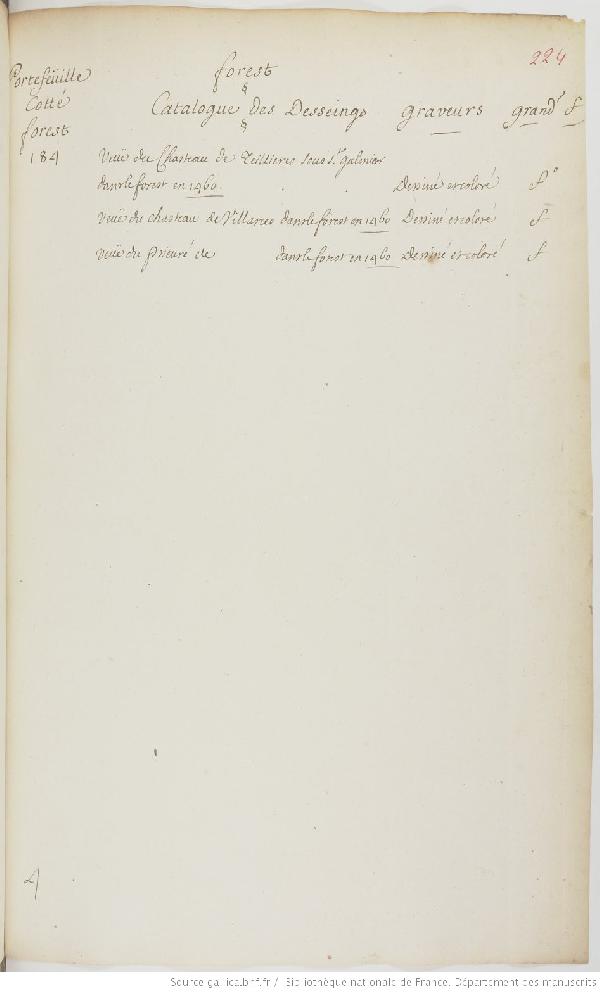 224
forest
Portefeüille
Cotté
forest
184
Catalogue des Desseings graveurs grandr f
Veüe du Chasteau de Teillieres sous St galmier
dans le forest en 1460. Dessiné et coloré fo
Veüe du chasteau de Villars dans le forest en 1460 Dessiné et coloré f
Veüe du prieuré de dans le forest en 1460 Dessiné et coloré f
4
Source gallica.bnf.fr / Bibliothèque nationale de France. Département des manuscrits